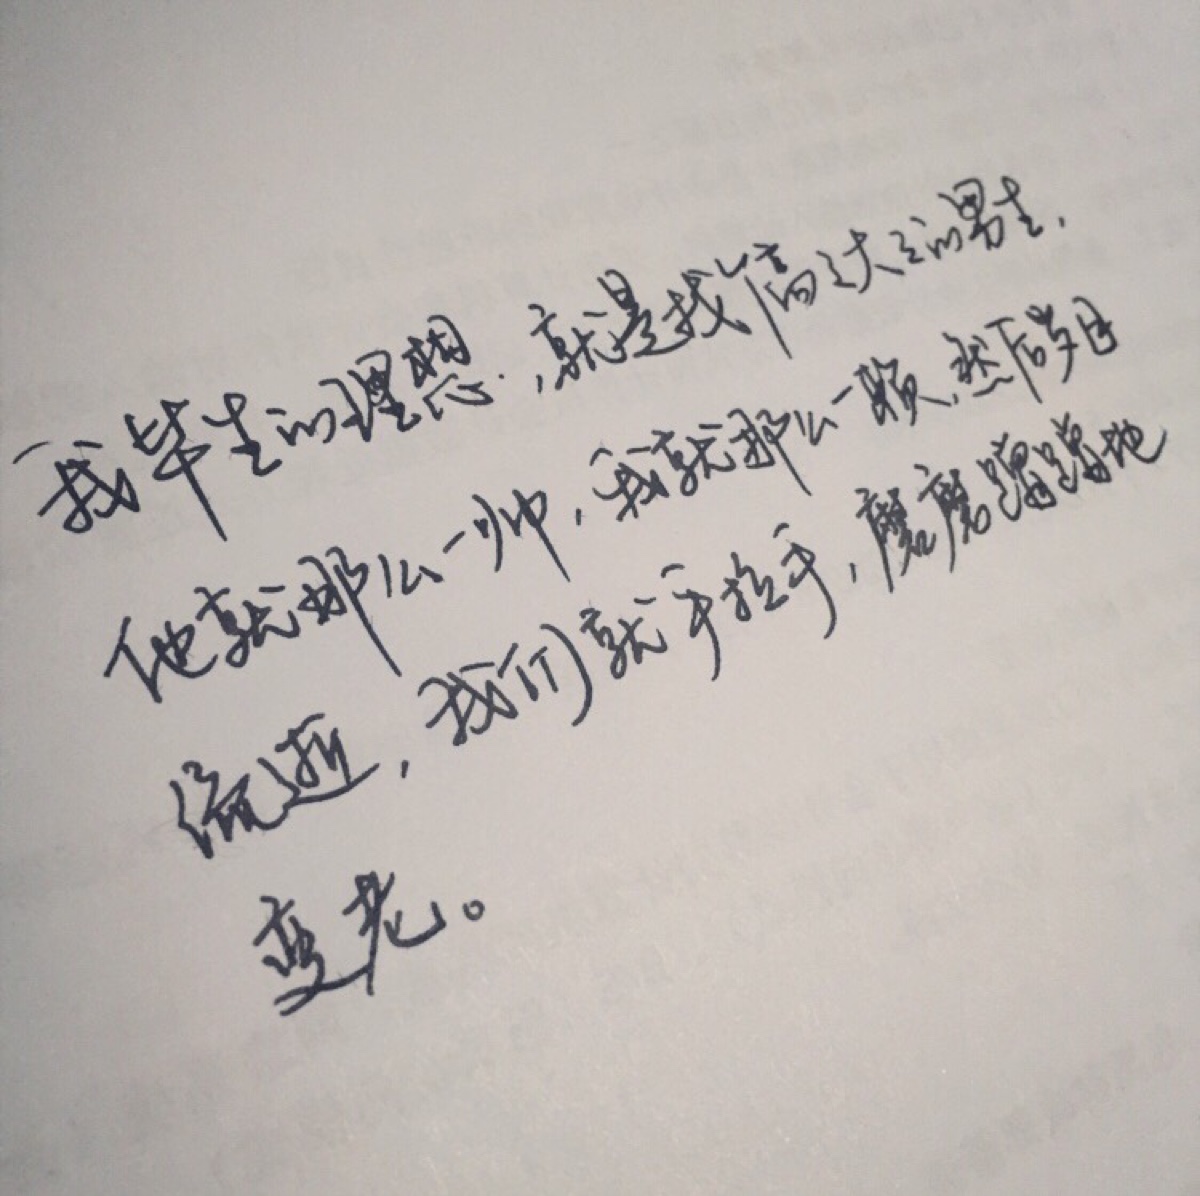 我毕生的理想，就是找个高高大大的男生，
他就那么一帅，我就那么一靓，然后岁月
流逝，我们就手拉手，磨磨蹭蹭地
变老。